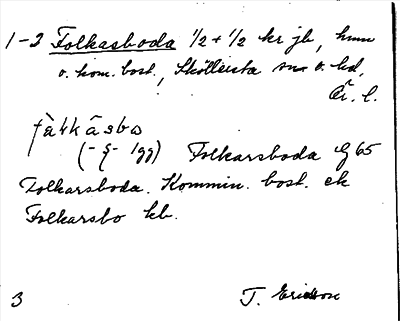 1-2 Folkasboda 1/2 + 1/2 kr jb, hmn
o. kom. bost., Sköllersta sn o. hd,
Ör. l.
fàlkåsbo
(-g- 1gg) Folkarsboda Gg 65
Folkarsboda. Kommin. bost. ek
Folkarsbo kb.
3 T. Ericsson